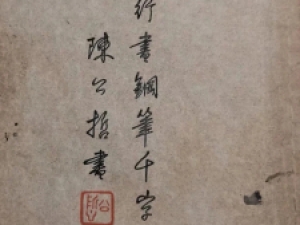 行書鋼筆千字
陳公哲書
公哲